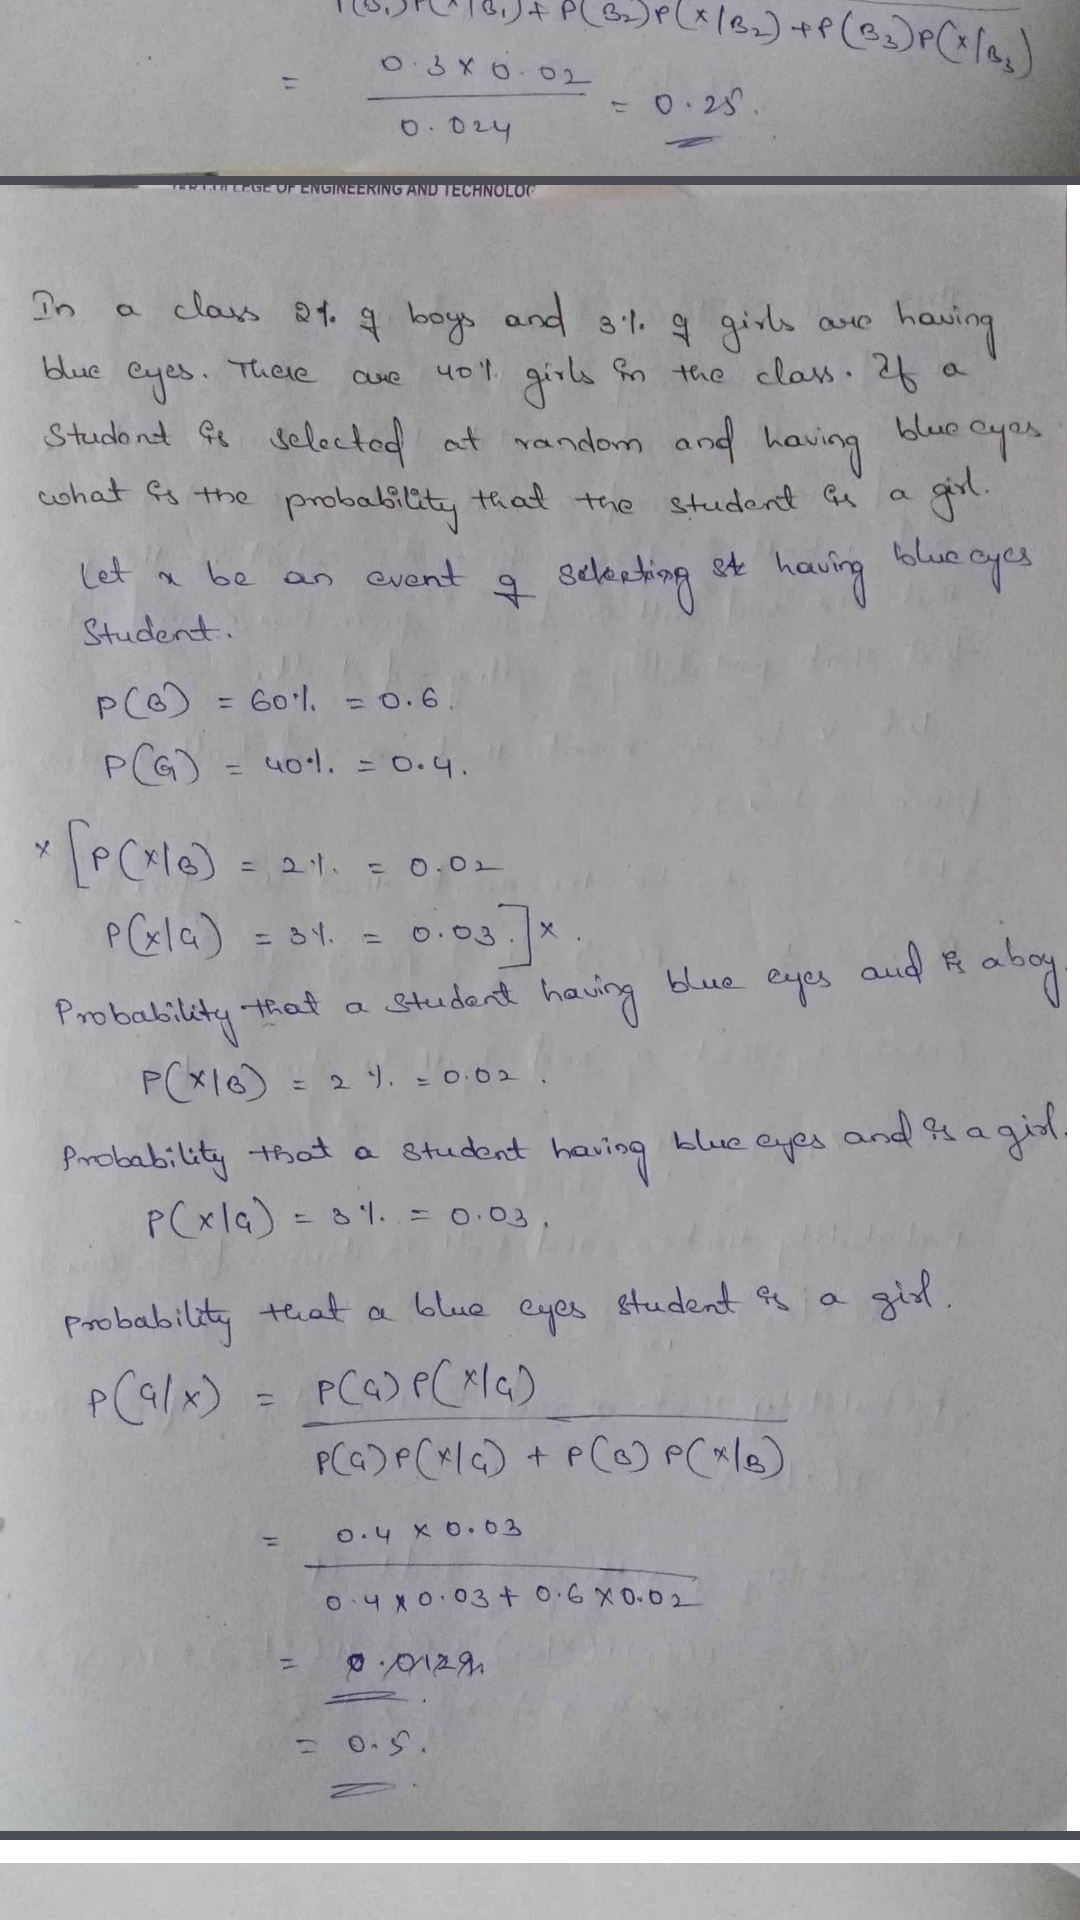 P(B1)P(X/B1) + P(B2)P(X/B2) + P(B3)P(X/B3)
= 0.3 × 0.02
0.024
= 0.25.
LLEGE OF ENGINEERING AND TECHNOLOG
In a class 2% of boys and 3% of girls are having
blue eyes. There are 40% girls in the class. If a
student is selected at random and having blue eyes
what is the probability that the student is a girl.
Let x be an event of selecting st having blue eyes
student.
P(B) = 60% = 0.6.
P(G) = 40% = 0.4.
x [P(X/B) = 2% = 0.02
P(X/G) = 3% = 0.03.] x.
Probability that a student having blue eyes and is a boy.
P(X/B) = 2 % = 0.02.
Probability that a student having blue eyes and is a girl.
P(X/G) = 3% = 0.03.
Probability that a blue eyes student is a girl.
P(G/X) = P(G) P(X/G)
P(G) P(X/G) + P(B) P(X/B)
= 0.4 × 0.03
0.4 × 0.03 + 0.6 × 0.02
=
= 0.5.